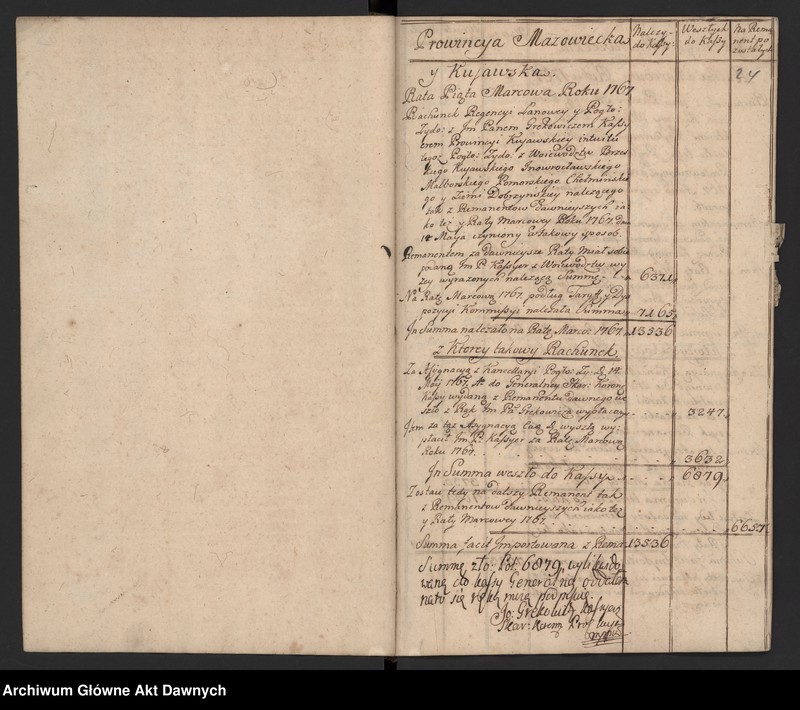 Prowincya Mazowiecka
Należy do Kassy
Weszłych do Kassy
Na Remanent pozostałych
24
y Kujawska.
Rata Piąta Marcowa Roku 1767
Rachunek Regencyi Łanowey y Pogło:
Zydo: z Jm Panem Grekowiczem Kassy
erem Prowincyi Kujawskiey intuitu
tegoż Pogło: Zydo: z Woiewodztw Brzes
kiego Kujawskiego Jnowrocławskiego
Malborskiego Pomorskiego, Chełmińskie
go y Ziemi Dobrzyńskiey należącego
tak z Remanentow dawnieyszych ia
ko też y Raty Marcowey Roku 1767. dnia
14 Maja czyniony w takowy sposob.
Remanentem za dawnieysze Raty miał sobie
podaną Jm P. Kassyer z Woiewodztw wy
żey wyrażonych należącą Summę 6371
Na Ratę Marcową 1767. podług Taryff y Dys
pozycyi Kommissyi należała Summa 7165
Jn Summa należało na Ratę Marco: 1767. 13536
z Ktorey takowy Rachunek
Za Assygnacyą z Kancellaryi Pogło: Zy: d. 14.
Maij 1767. do Generalney Skar: Koron:
Kassy wydaną z Remanentu dawnego we
szło z Rąk Jm Pa: Grekowicza wypłacony 3247.
Jtem za taż Assygnacyą wyszłą wy:
płacił Jm P. Kassyer za Ratę Marcową
Roku 1767. 3632
Jn Summa weszło do Kassy 6879
Zostaie tedy na dalszy Remanent tak
z Remanentow dawnieyszych iako też
y Raty Marcowey 1767. 6657
Summa facit Jmportowana z Rema 13536
Summę zło: Pol: 6879. wylikwido
waną do kassy Generalney oddałem
na to się ręką moią podpisuię.
Jo: Grekowicz Kassyer
Skar: Koron: Pro:
Archiwum Główne Akt Dawnych